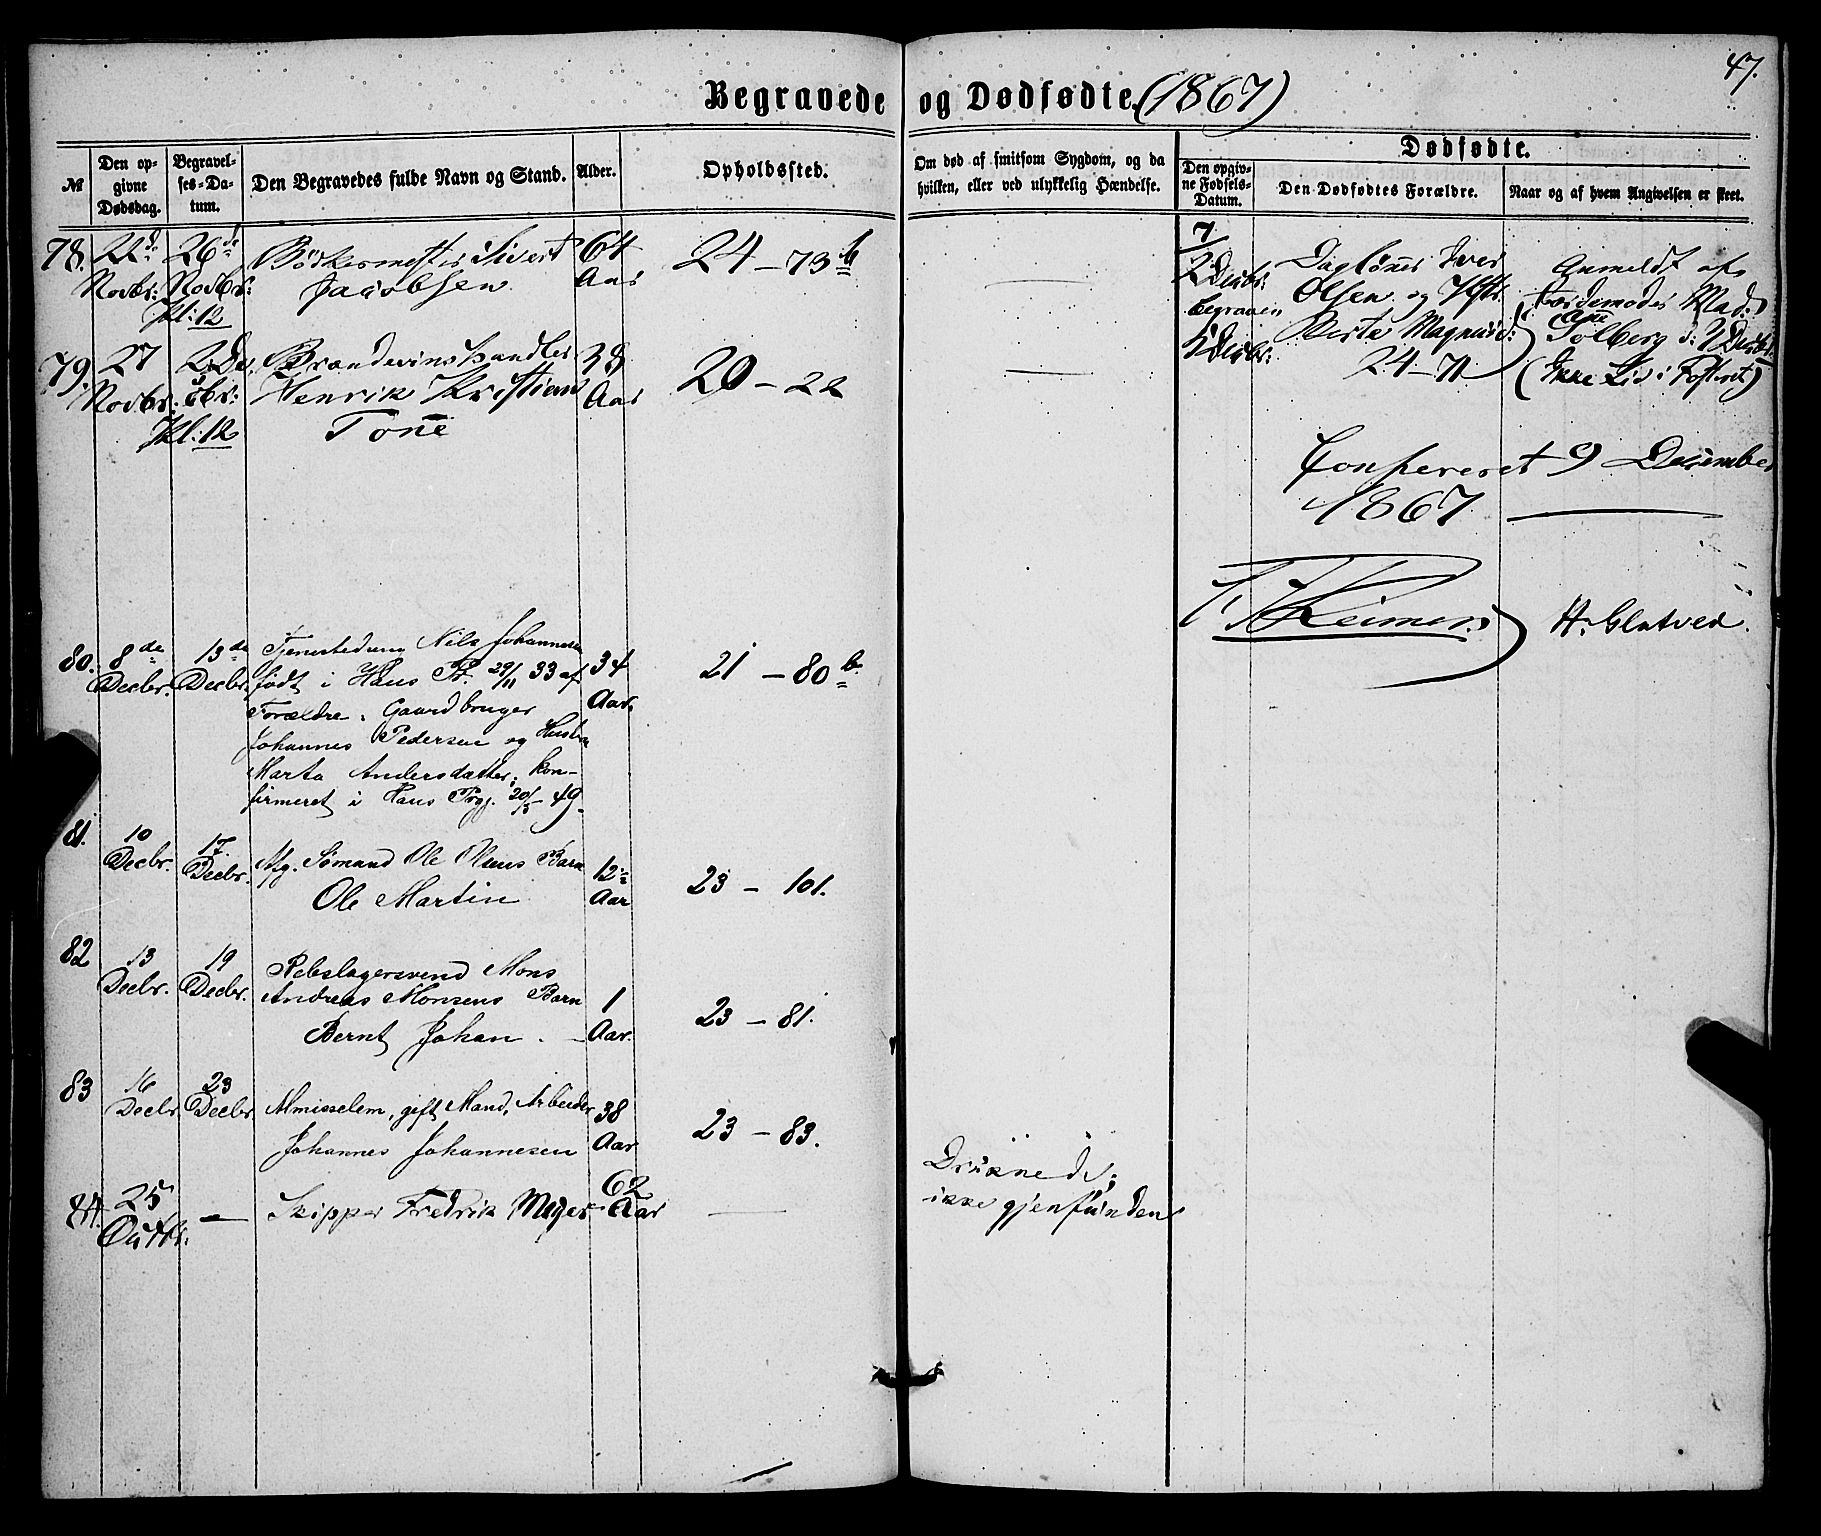 47.
Begravede og Dødfødte. (1867)
№
Den opgivne Dødsdag.
Begravelses-Datum.
Den Begravedes fulde Navn og Stand.
Alder.
Opholdssted.
Om død af smitsom Sygdom, og da hvilken, eller ved ulykkelig Hændelse.
Dødfødte.
Den opgivne Fødsels-Datum.
Den Dødfødtes Forældre.
Naar og af hvem Angivelsen er skeet.
78. 22d Novbr: 26de Novbr: Kl: 12
Bødkermester Sivert
Jacobsen
64 Aar
24 – 73b
79. 27 Novbr: 2 Decbr: Kl: 12
Brændevinshandler
Henrik Kristian
Tone
38 Aar
20 – 22
7
2 Decbr:
begraven
5 Decbr:
Daglønner Iver
Olsen og Hstr.
Berte Magnusd:
24 – 71
Anmeldt af
Jordemoder Mad:
Solberg d: 2 Decbr:
(Ikke Liv i Fosteret)
Confereret 9 December
1867
H. Glatved.
80. 8de Decbr. 13de Decbr.
Tjenestedreng Nils Johannesen
født i Haus Pr. 29/11 33 af
Forældre: Gaardbruger
Johannes Pedersen og Hustru
Marta Andersdatter; kon-
firmeret i Haus Prgj. 20/5 49.
34 Aar.
21 – 80b.
81. 10 Decbr. 17. Decbr.
Afg. Sømand Ole Olsens Barn
Ole Martin
12 Aar
23 – 101.
82 13 Decbr. 19 Decbr.
Rebslagersvend Mons
Andreas Monsens Barn
Bernt Johan. –
1 Aar.
23 – 81.
83 16 Decbr 23 Decbr
Almisselem, gift Mand, Arbeider
Johannes Johannesen
38 Aar
23 – 83.
84. 25 Octbr. –
Skipper Fredrik Meyer
62 Aar
Druknede;
ikke gjenfunden